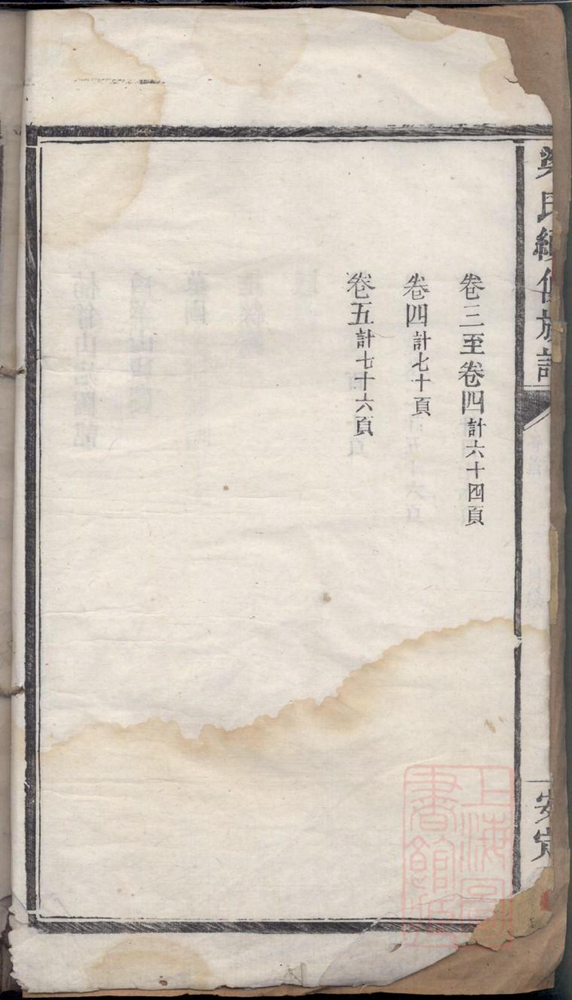 卷三至卷四計六十四頁
卷四計七十頁
卷五計七十六頁
氏續修族譜
安定
上海圖書館藏